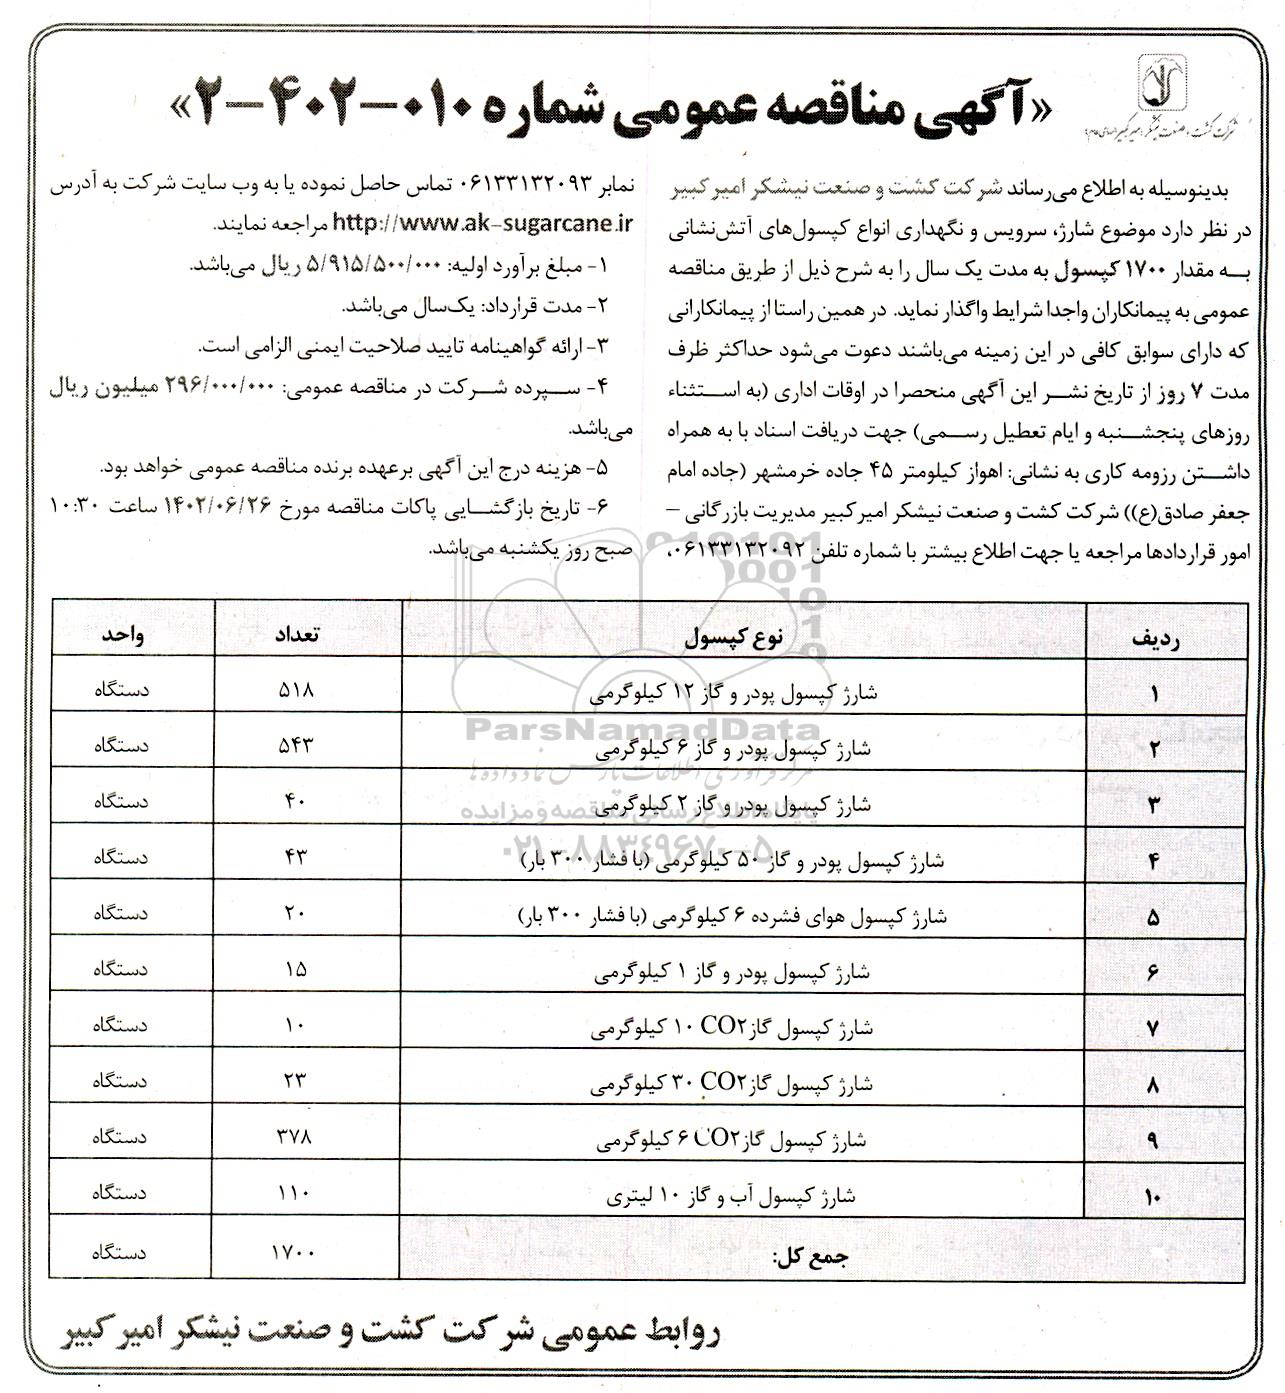 شرکت کشت و صنعت نیشکر امیرکبیر (سهامی خاص)
«آگهی مناقصه عمومی شماره ۰۱۰-۴۰۲-۲»
بدینوسیله به اطلاع می‌رساند شرکت کشت و صنعت نیشکر امیرکبیر
در نظر دارد موضوع شارژ، سرویس و نگهداری انواع کپسول‌های آتش‌نشانی
به مقدار ۱۷۰۰ کپسول به مدت یک سال را به شرح ذیل از طریق مناقصه
عمومی به پیمانکاران واجدا شرایط واگذار نماید. در همین راستا از پیمانکارانی
که دارای سوابق کافی در این زمینه می‌باشند دعوت می‌شود حداکثر ظرف
مدت ۷ روز از تاریخ نشر این آگهی منحصرا در اوقات اداری (به استثناء
روزهای پنجشنبه و ایام تعطیل رسمی) جهت دریافت اسناد با به همراه
داشتن رزومه کاری به نشانی: اهواز کیلومتر ۴۵ جاده خرمشهر (جاده امام
جعفر صادق(ع)) شرکت کشت و صنعت نیشکر امیرکبیر مدیریت بازرگانی –
امور قراردادها مراجعه یا جهت اطلاع بیشتر با شماره تلفن ۰۶۱۳۳۱۳۲۰۹۲،
نمابر ۰۶۱۳۳۱۳۲۰۹۳ تماس حاصل نموده یا به وب سایت شرکت به آدرس
http://www.ak-sugarcane.ir مراجعه نمایند.
۱- مبلغ برآورد اولیه: ۵/۹۱۵/۵۰۰/۰۰۰ ریال می‌باشد.
۲- مدت قرارداد: یک‌سال می‌باشد.
۳- ارائه گواهینامه تایید صلاحیت ایمنی الزامی است.
۴- سپرده شرکت در مناقصه عمومی: ۲۹۶/۰۰۰/۰۰۰ میلیون ریال
می‌باشد.
۵- هزینه درج این آگهی برعهده برنده مناقصه عمومی خواهد بود.
۶- تاریخ بازگشایی پاکات مناقصه مورخ ۱۴۰۲/۰۶/۲۶ ساعت ۱۰:۳۰
صبح روز یکشنبه می‌باشد.
ردیف نوع کپسول تعداد واحد
۱ شارژ کپسول پودر و گاز ۱۲ کیلوگرمی ۵۱۸ دستگاه
۲ شارژ کپسول پودر و گاز ۶ کیلوگرمی ۵۴۳ دستگاه
۳ شارژ کپسول پودر و گاز ۲ کیلوگرمی ۴۰ دستگاه
۴ شارژ کپسول پودر و گاز ۵۰ کیلوگرمی (با فشار ۳۰۰ بار) ۴۳ دستگاه
۵ شارژ کپسول هوای فشرده ۶ کیلوگرمی (با فشار ۳۰۰ بار) ۲۰ دستگاه
۶ شارژ کپسول پودر و گاز ۱ کیلوگرمی ۱۵ دستگاه
۷ شارژ کپسول گاز CO۲ ۱۰ کیلوگرمی ۱۰ دستگاه
۸ شارژ کپسول گاز CO۲ ۳۰ کیلوگرمی ۲۳ دستگاه
۹ شارژ کپسول گاز CO۲ ۶ کیلوگرمی ۳۷۸ دستگاه
۱۰ شارژ کپسول آب و گاز ۱۰ لیتری ۱۱۰ دستگاه
جمع کل: ۱۷۰۰ دستگاه
روابط عمومی شرکت کشت و صنعت نیشکر امیر کبیر
ParsNamadData
مرکز فرآوری اطلاعات پارس نماد داده ها
پایگاه اطلاع رسانی مناقصه و مزایده
۰۲۱-۸۸۳۴۹۶۷۰-۵